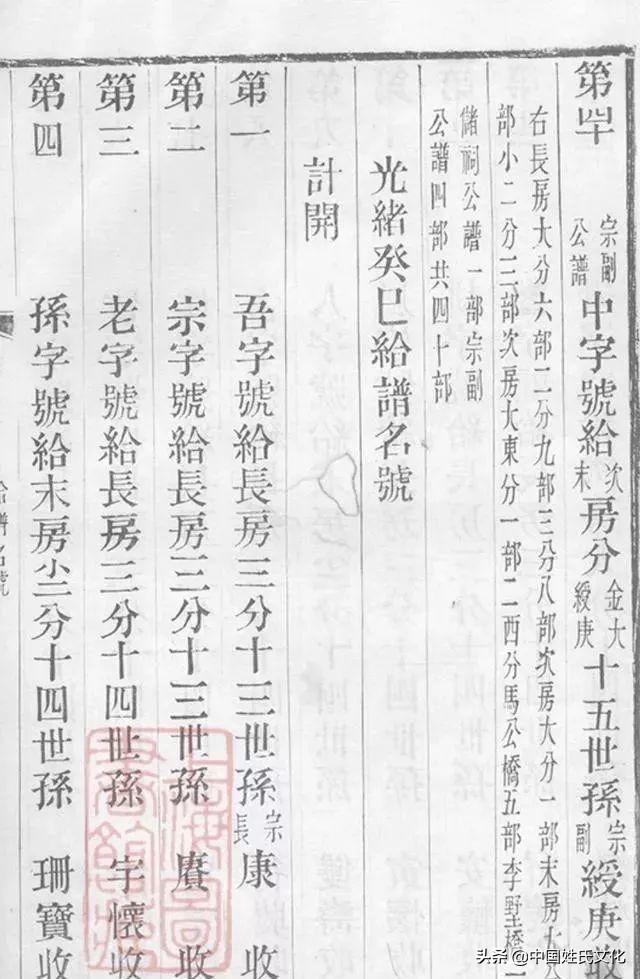 第四十 宗副公譜 中字號給 次末 房分 金大綬庚 十五世孫 宗副 綬庚收
右長房大分六部二分九部三分八部次房大分一部末房大
部小二分三部次房大東分一部二西分馬公橋五部李埜橋
儲祠公譜一部宗副
公譜四部共四十部
光緒癸巳給譜名號
計開
第一 吾字號給長房三分十三世孫 宗長 康 收
第二 宗字號給長房三分十三世孫 賡 收
第三 老字號給長房三分十四世孫 宇懷收
第四 孫字號給末房小二分十四世孫 珊寶收
給譜名號
头条 @中国姓氏文化